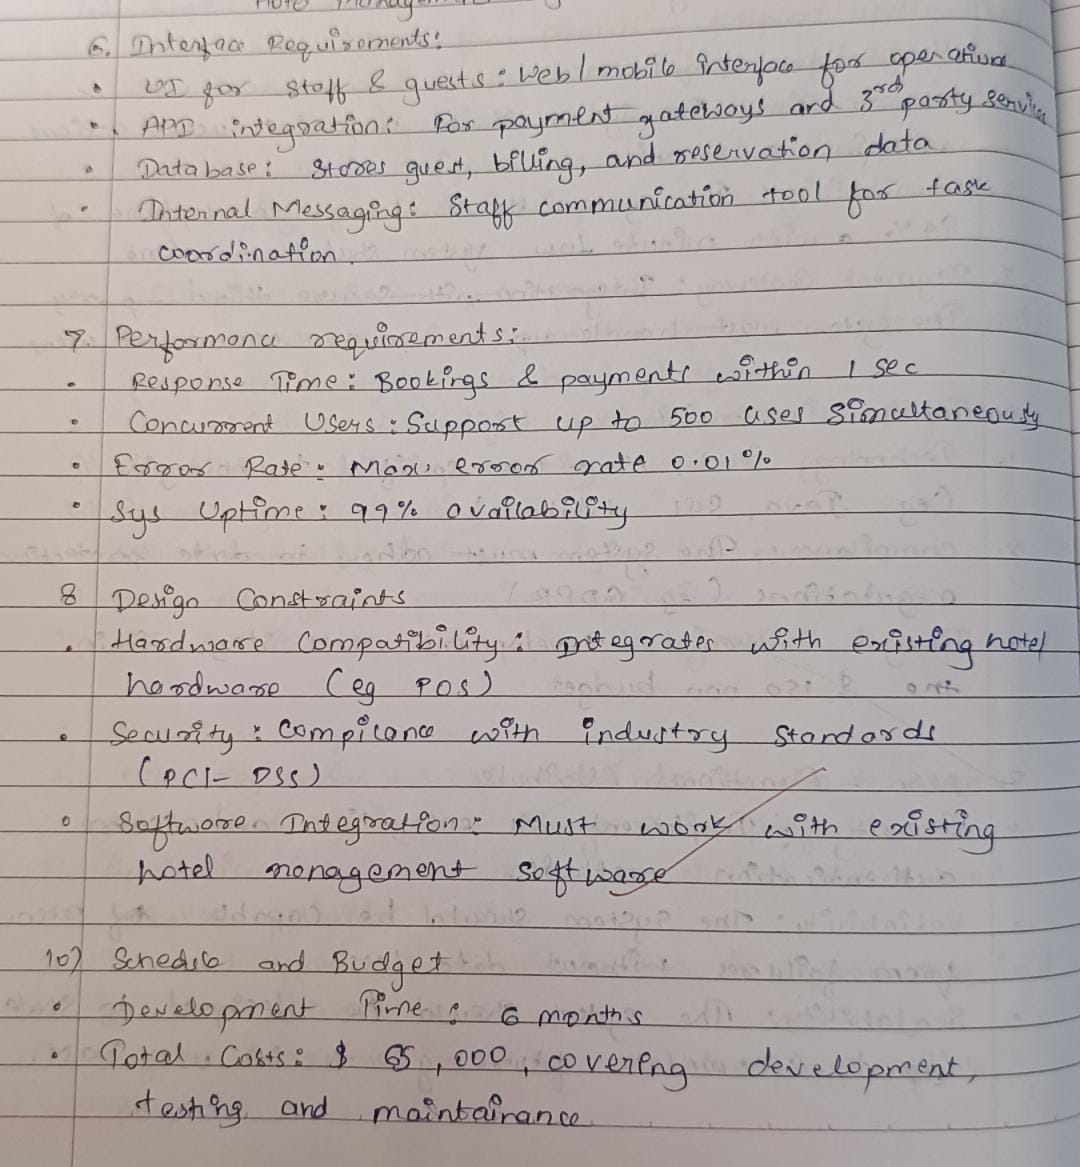 Hotel Manageme
6. Interface Requirements:
• UI for staff & guests: Web/mobile interface for operations
• API integration: For payment gateways and 3rd party services
• Database: Stores guest, billing, and reservation data
• Internal Messaging: Staff communication tool for task
coordination.
7. Performance requirements:
• Response Time: Bookings & payments within 1 sec
• Concurrent Users: Support up to 500 uses simultaneously
• Error Rate: Max. error rate 0.01%
• Sys Uptime: 99% availability
8 Design Constraints
• Hardware Compatibility: Integrates with existing hotel
hardware (eg POS)
• Security: Compliance with industry standards
(PCI-DSS)
• Software Integration: Must work with existing
hotel management software
10) Schedule and Budget
• Development Time: 6 months
• Total Costs: $ 65,000, covering development,
testing and maintainance